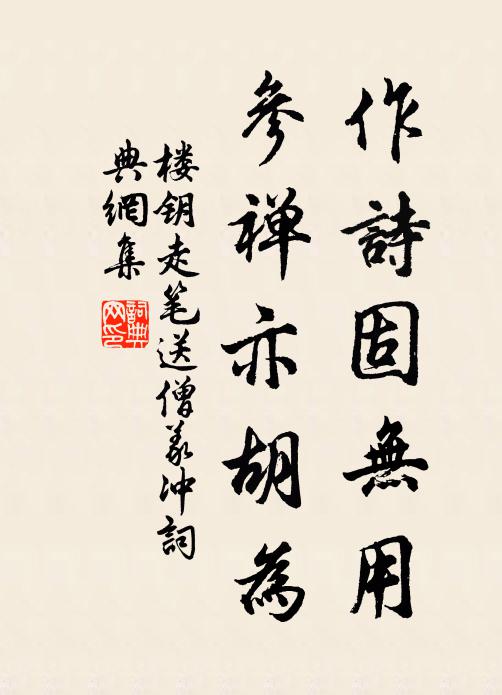 作詩固無用
參禅亦胡為
楼钥走笔送僧义冲詞
典網集
詞典
网印